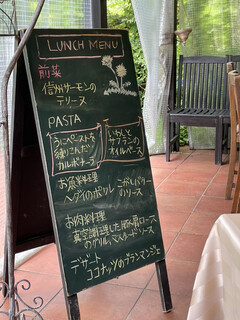 LUNCH MENU
前菜
信州サーモンの
テリーヌ
PASTA
うにペーストを
練りこんだ
カルボナーラ
いわしと
サフランの
オイルベース
お魚料理
ヘダイのポワレ こがしバター
のソース
お肉料理
真空調理した豚肩ロース
のグリル マスタードソース
デザート
ココナッツのブランマンジェ